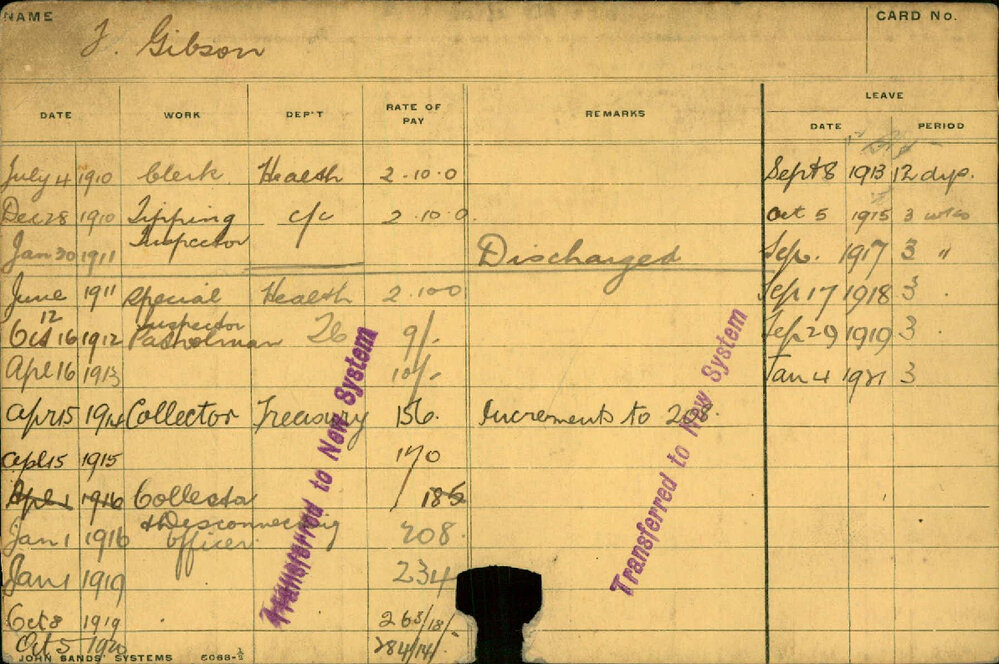 NAME J. Gibson CARD No.
LEAVE
DATE WORK DEP'T RATE OF PAY REMARKS DATE PERIOD
July 4 1910 Clerk Health 2.10.0 Sept 8 1913 12 dys.
Dec 28 1910 Tipping c/c 2.10.0 Oct 5 1915 3 wks
Jan 30 1911 Inspector Discharged Sep. 1917 3 "
June 12 1911 Special Health 2.10.0 Sep 17 1918 3
Inspector
Oct 16 1912 Patrolman 9/- Sep 29 1919 3
Apl 16 1913 10/- Jan 4 1921 3
Apr 15 1914 Collector Treasury 156. Increments to 208.
Apl 15 1915 170
Apl 1 1916 Collector 185
& Disconnecting
Jan 1 1916 Officer 208.
Jan 1 1919 234
Oct 8 1919 263/18/
Oct 5 1920 284/14/-
Transferred to New System
Transferred to New System
JOHN SANDS' SYSTEMS 6068-